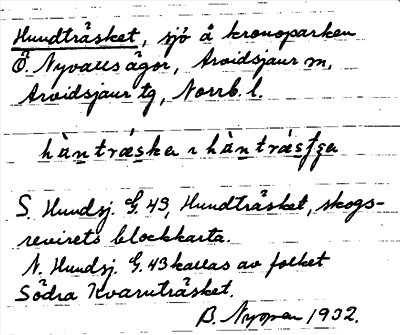 Hundträsket, sjö å kronoparken
Ö. Nyvalls ägor, Arvidsjaur m,
Arvidsjaur tg, Norrb. l.
hà̀nträska ꝛ hà̀nträsʃʒa
S. Hundsj. G. 43, Hundträsket, skogs-
revirets blockkarta.
N. Hundsj. G. 43 kallas av folket
Södra Kvarnträsket.
B. 1932.